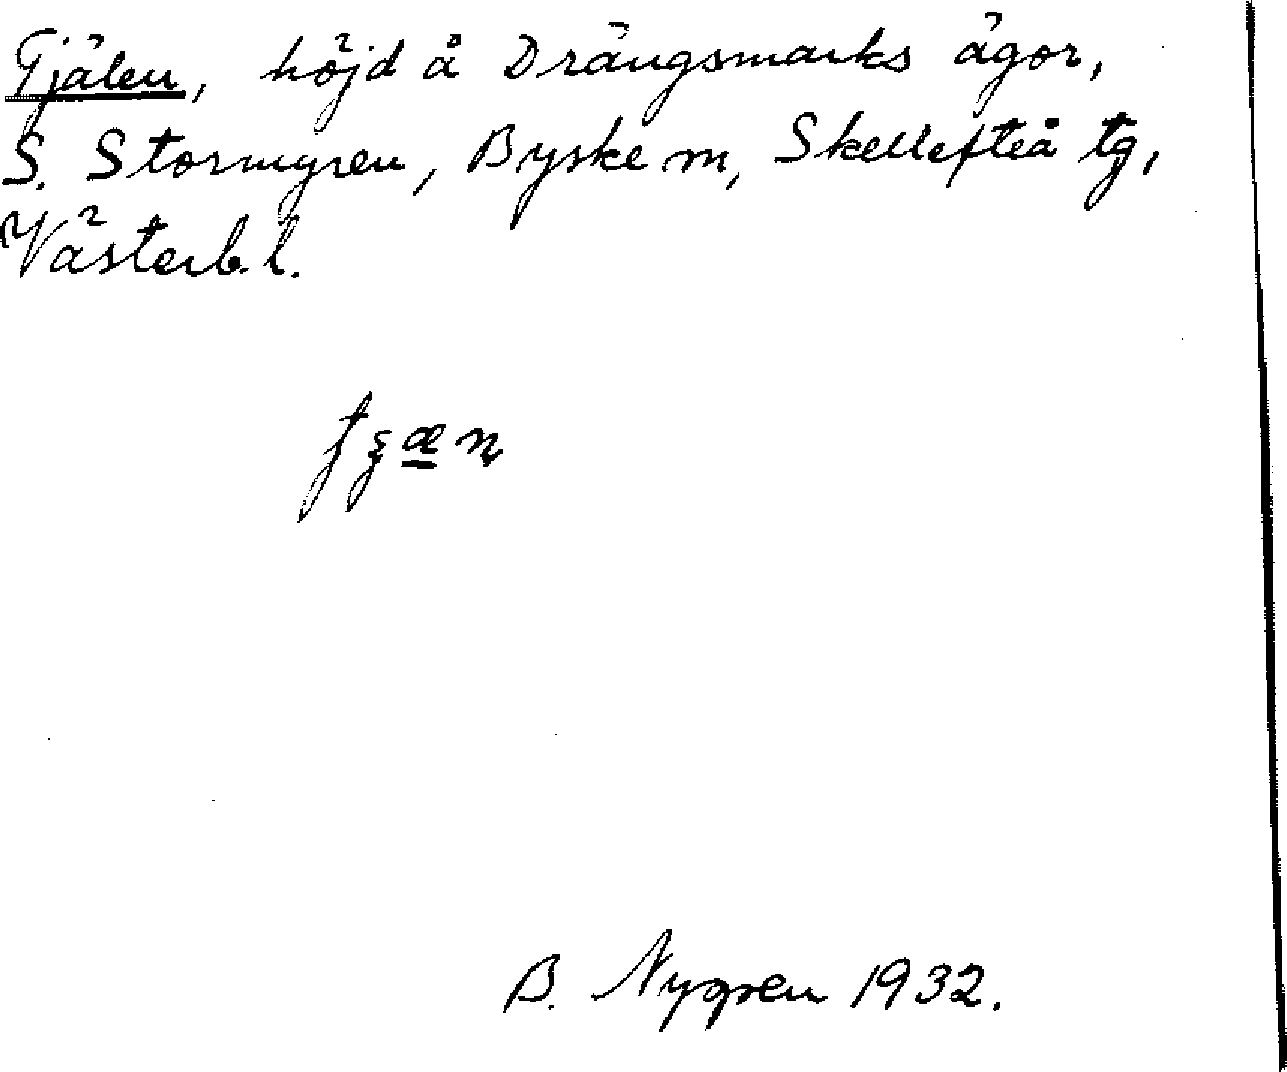 Tjälen, höjd å Drängsmarks ägor,
S. Stormyren, Byske m, Skellefteå tg,
Västerb. l.
B. Nygren 1932.